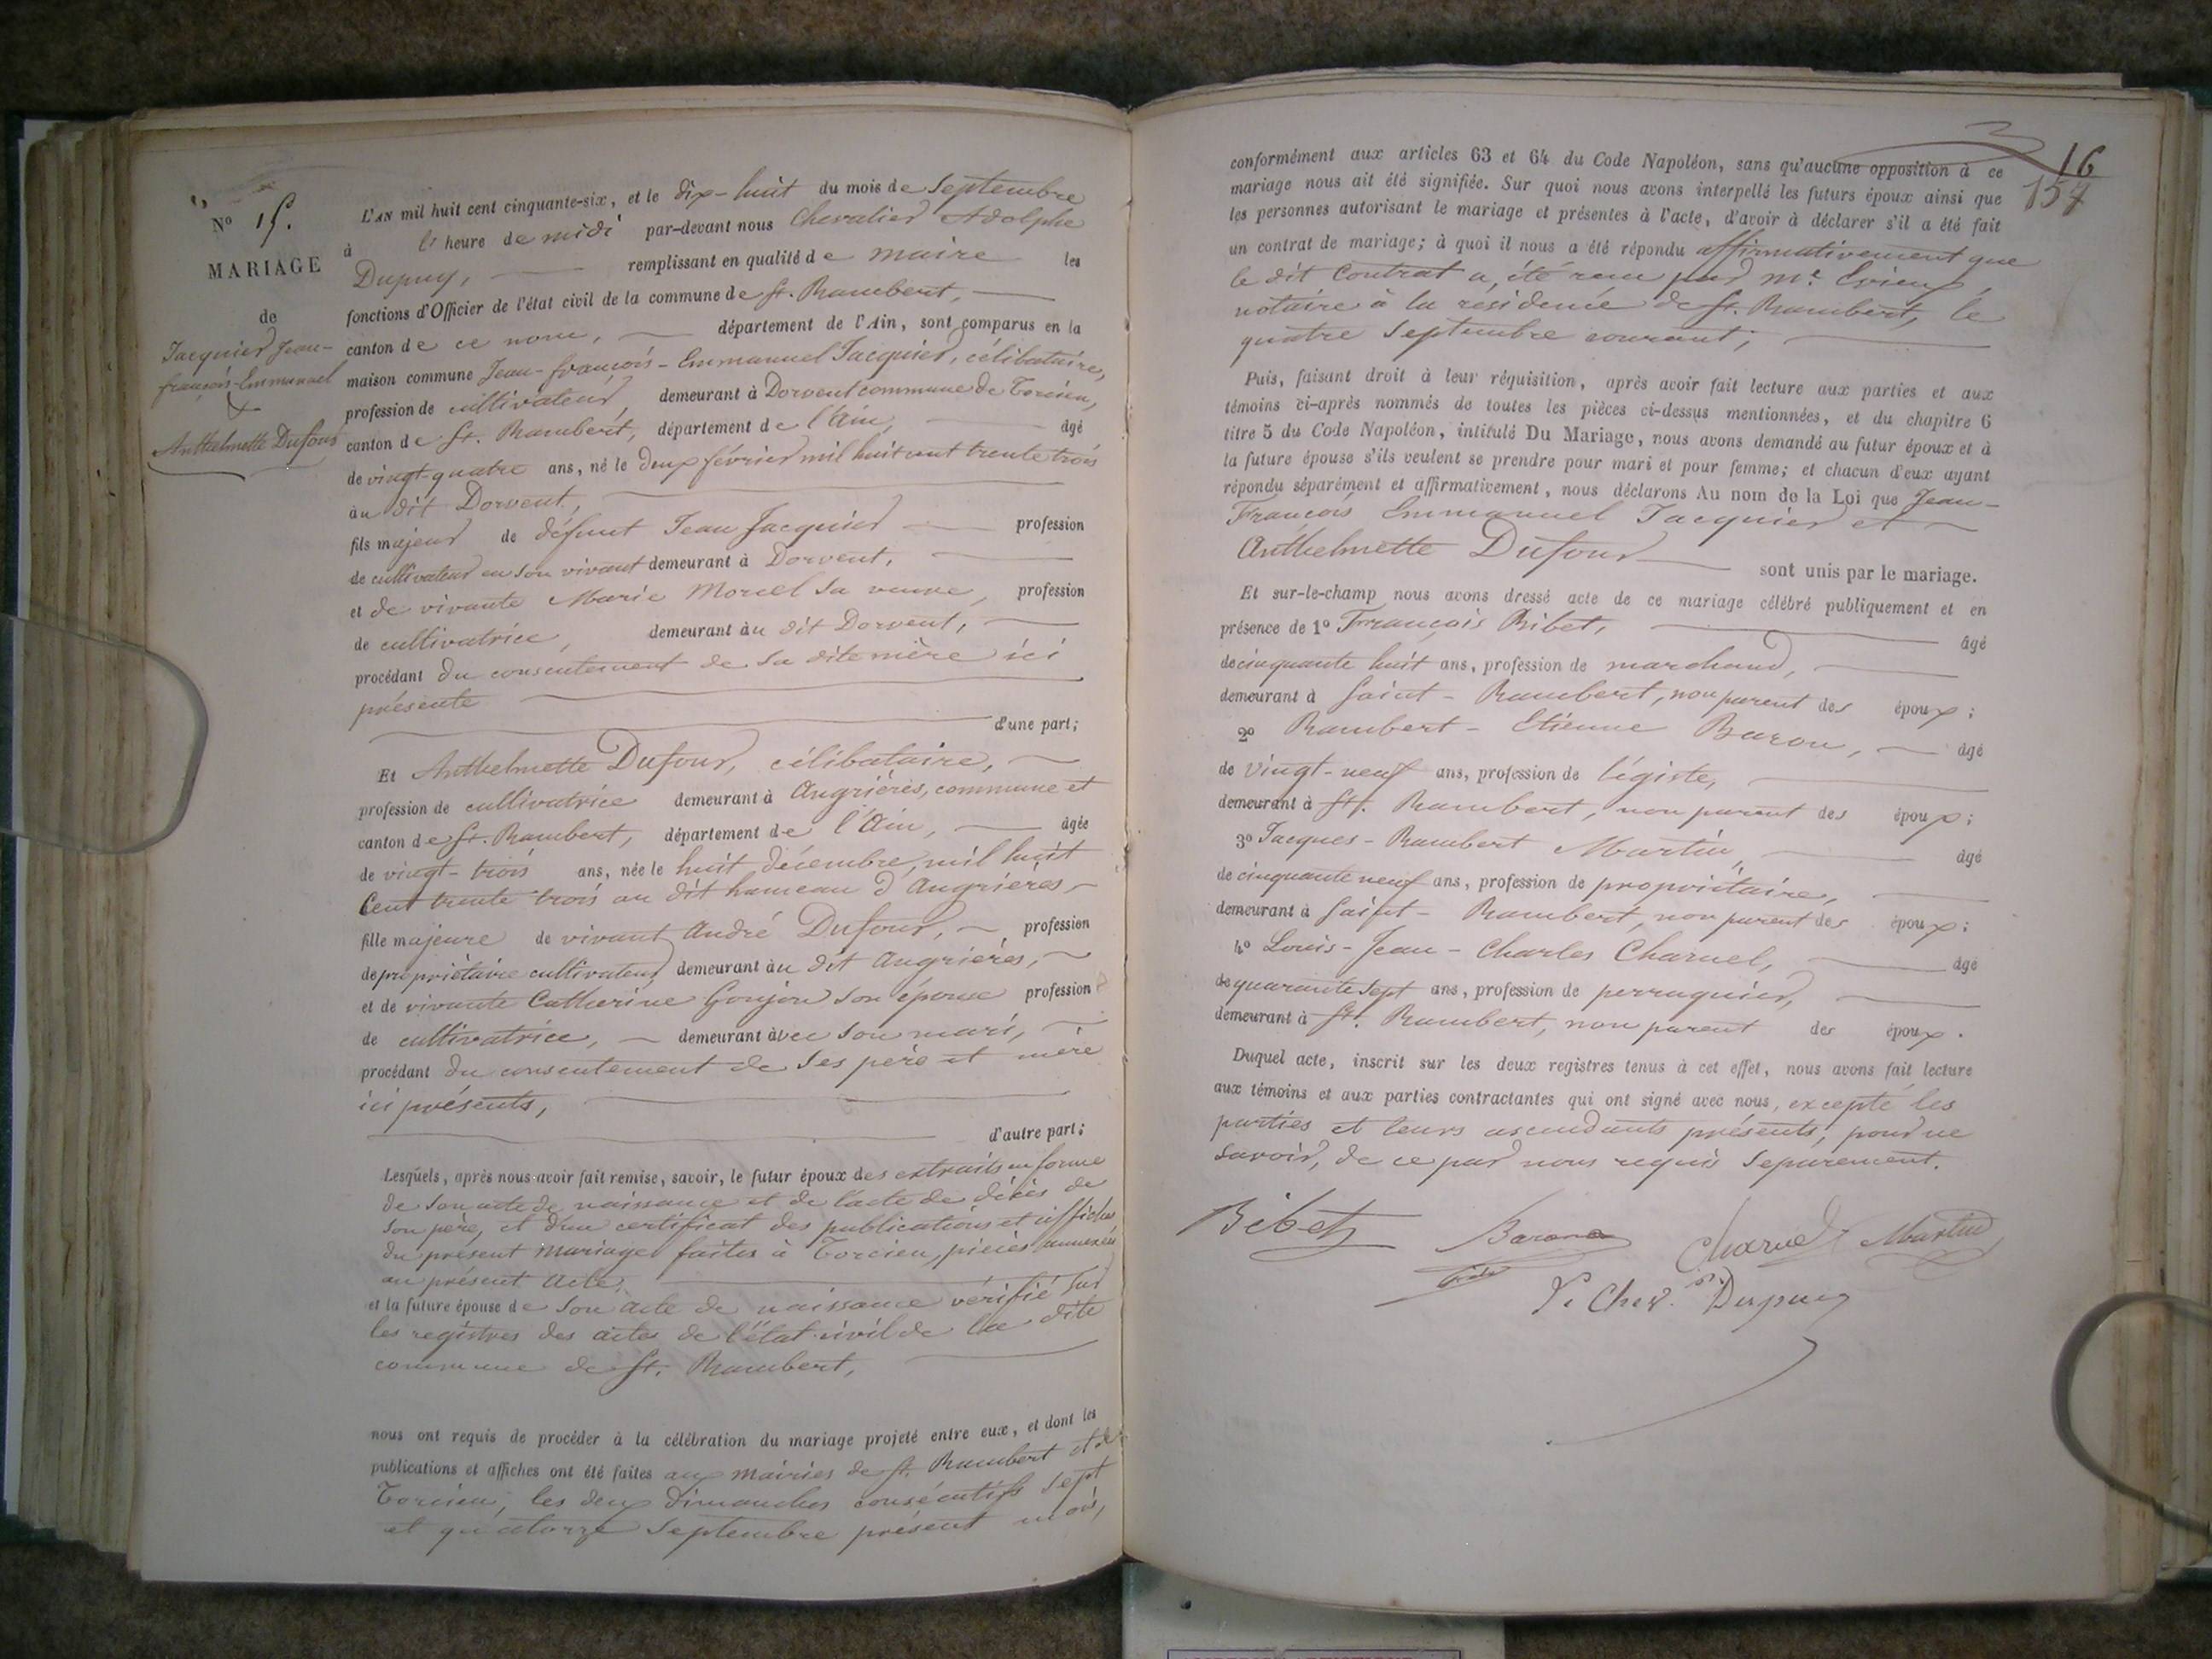 Nº 15.
MARIAGE
de
Jacquier Jean-
françois-Emmanuel
&
Anthelmette Dufour
L'AN mil huit cent cinquante-six, et le dix-huit du mois de Septembre
à l' heure de midi par-devant nous Chevalier Adolphe
Dupuy, remplissant en qualité de maire les
fonctions d'Officier de l'état civil de la commune de St. Rambert,
canton de ce nom, département de l'Ain, sont comparus en la
maison commune Jean-françois-Emmanuel Jacquier, célibataire,
profession de cultivateur demeurant à Dorvent commune de Torcieu,
canton de St. Rambert, département de l'Ain, âgé
de vingt-quatre ans, né le deux février mil huit cent trente trois
au dit Dorvent,
fils majeur de défunt Jean Jacquier profession
de cultivateur en son vivant demeurant à Dorvent,
et de vivante Marie Morel sa veuve, profession
de cultivatrice, demeurant au dit Dorvent,
procédant du consentement de sa dite mère ici
présente
d'une part;
Et Anthelmette Dufour, célibataire,
profession de cultivatrice demeurant à Angrières, commune et
canton de St. Rambert, département de l'Ain, âgée
de vingt-trois ans, née le huit décembre, mil huit
Cent trente trois au dit hameau d'Angrières
fille majeure de vivant André Dufour, profession
de propriétaire cultivateur demeurant au dit Angrières,
et de vivante Catherine Goujon son épouse profession
de cultivatrice, demeurant avec son mari,
procédant du consentement de ses père et mère
ici présents,
d'autre part;
Lesquels, après nous avoir fait remise, savoir, le futur époux des extraits en forme
de son acte de naissance et de l'acte de décès de
son père, et d'un certificat des publications et affiches
du présent mariage faites à Torcieu, pièces annexées
au présent acte,
et la future épouse de son acte de naissance vérifié sur
les registres des actes de l'état civil de la dite
commune de St. Rambert,
nous ont requis de procéder à la célébration du mariage projeté entre eux, et dont les
publications et affiches ont été faites aux mairies de St. Rambert et de
Torcieu, les deux dimanches consécutifs sept
et quatorze Septembre présent mois,
16
157
conformément aux articles 63 et 64 du Code Napoléon, sans qu'aucune opposition à ce
mariage nous ait été signifiée. Sur quoi nous avons interpellé les futurs époux ainsi que
les personnes autorisant le mariage et présentes à l'acte, d'avoir à déclarer s'il a été fait
un contrat de mariage; à quoi il nous a été répondu affirmativement que
le dit Contrat a été reçu par Me.
notaire à la residence de St. Rambert, le
quatre Septembre courant;
Puis, faisant droit à leur réquisition, après avoir fait lecture aux parties et aux
témoins ci-après nommés de toutes les pièces ci-dessus mentionnées, et du chapitre 6
titre 5 du Code Napoléon, intitulé Du Mariage, nous avons demandé au futur époux et à
la future épouse s'ils veulent se prendre pour mari et pour femme; et chacun d'eux ayant
répondu séparément et affirmativement, nous déclarons Au nom de la Loi que Jean-
François Emmanuel Jacquier et
Anthelmette Dufour sont unis par le mariage.
Et sur-le-champ nous avons dressé acte de ce mariage célébré publiquement et en
présence de 1º François Bibet, âgé
de cinquante huit ans, profession de marchand,
demeurant à Saint-Rambert, non parent des époux;
2º Rambert-Etienne Baron, âgé
de vingt-neuf ans, profession de légiste,
demeurant à St. Rambert, non parent des époux;
3º Jacques-Rambert Martin, âgé
de cinquante neuf ans, profession de propriétaire,
demeurant à Saint-Rambert, non parent des époux;
4º Louis-Jean-Charles Charvel, âgé
de quarante sept ans, profession de perruquier,
demeurant à St. Rambert, non parent des époux.
Duquel acte, inscrit sur les deux registres tenus à cet effet, nous avons fait lecture
aux témoins et aux parties contractantes qui ont signé avec nous, excepté les
parties et leurs ascendants présents, pour ne
savoir, de ce par nous requis séparement.
Bibet Baron Charvel Martin
Le Cher. Dupuy